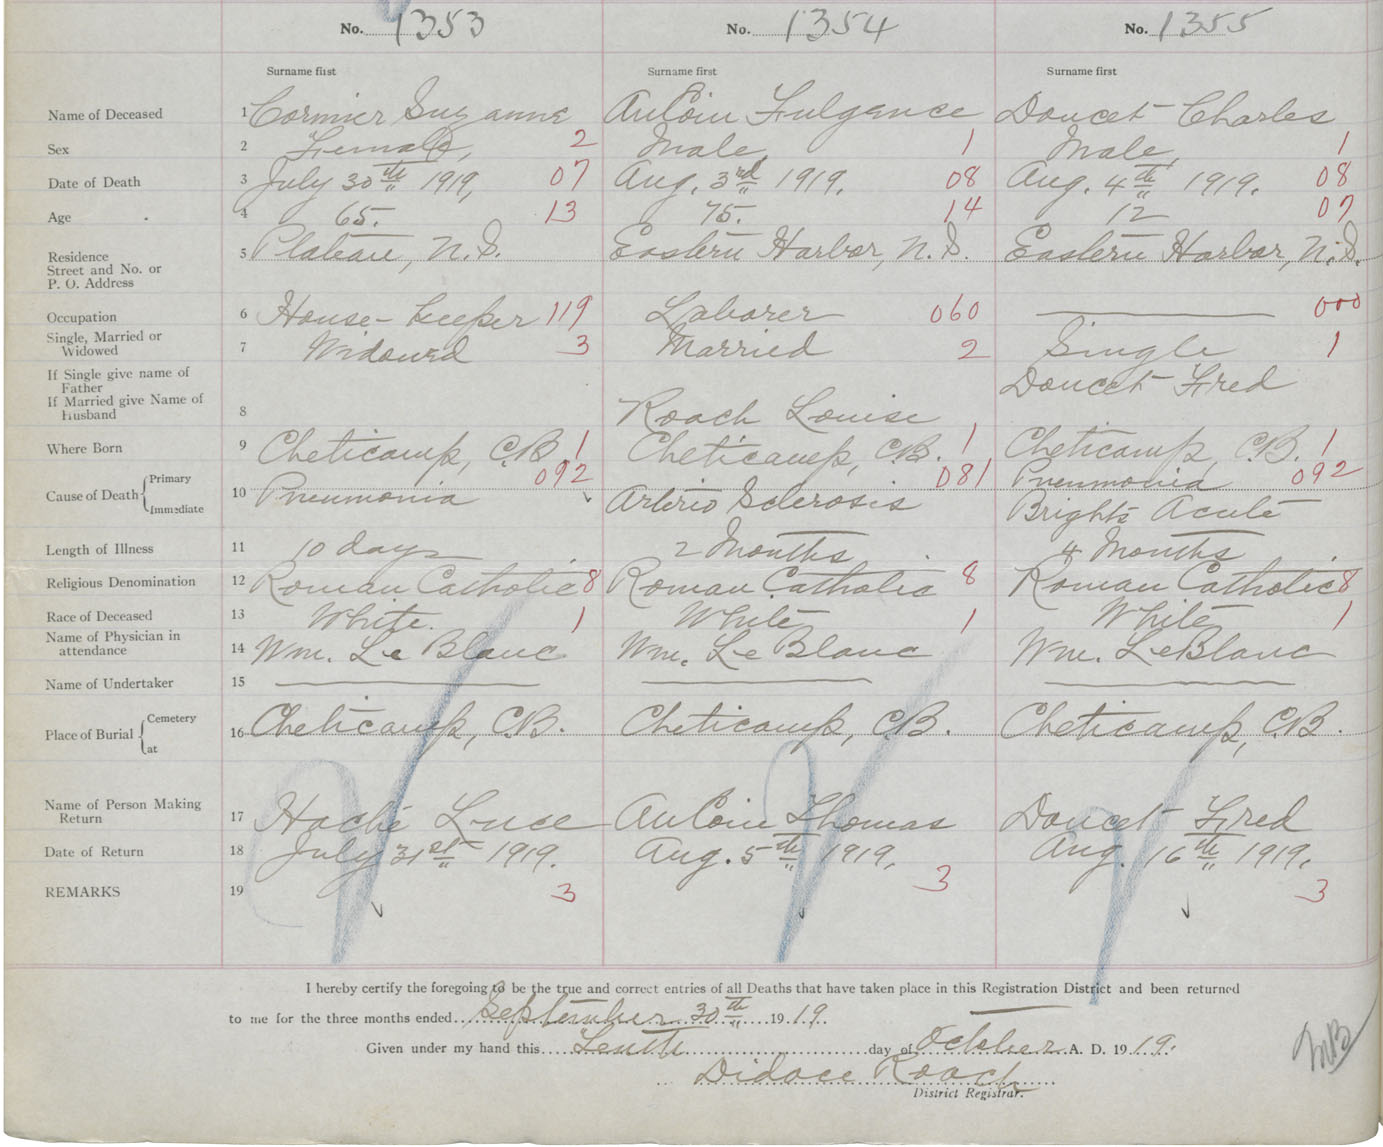 No. 1353 No. 1354 No. 1355
Surname first Surname first Surname first
Name of Deceased 1 Cormier Suzanne AuCoin Fulgence Doucet Charles
Sex 2 Female, 2 Male, 1 Male, 1
Date of Death 3 July 30th 1919, 07 Aug. 3rd 1919. 08 Aug. 4th 1919. 08
Age 4 65. 13 75. 14 12 07
Residence
Street and No. or
P. O. Address
5 Plateau, N.S. Eastern Harbor, N.S. Eastern Harbor, N.S.
Occupation 6 House-keeper 119 Laborer 060 000
Single, Married or
Widowed
7 Widowed 3 Married 2 Single 1
If Single give name of
Father
Doucet Fred
If Married give Name of
Husband
8 Roach Louise
Where Born 9 Cheticamp, C.B. 1 Cheticamp, C.B. 1 Cheticamp, C.B. 1
Cause of Death Primary 092 081 Pneumonia 092
10 Pneumonia Arterio Sclerosis
Immediate Brights Acute
Length of Illness 11 10 days 2 Months 4 Months
Religious Denomination 12 Roman Catholic 8 Roman Catholic 8 Roman Catholic 8
Race of Deceased 13 White. 1 White 1 White 1
Name of Physician in
attendance
14 Wm. Le Blanc Wm. Le Blanc Wm. LeBlanc
Name of Undertaker 15
Place of Burial Cemetery
at
16 Cheticamp, C.B. Cheticamp, C.B. Cheticamp, C.B.
Name of Person Making
Return
17 Haché Luce AuCoin Thomas Doucet Fred
Date of Return 18 July 31st 1919. Aug. 5th 1919. Aug. 16th 1919.
REMARKS 19 3 3 3
I hereby certify the foregoing to be the true and correct entries of all Deaths that have taken place in this Registration District and been returned
to me for the three months ended September 30th 1919.
Given under my hand this Tenth day of October A. D. 1919.
Didace Roach
District Registrar.
MB